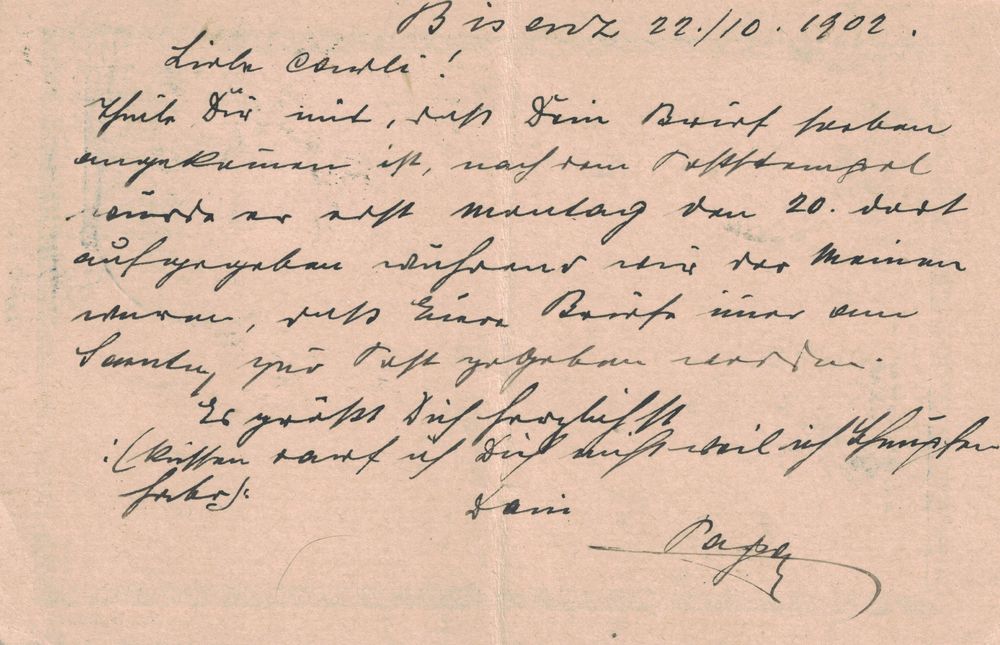 Bisenz 22./10. 1902.
Liebe Camili!
Theile Dir mit, daß Dein Brief soeben
angekom̅en ist, nach dem Poststempel
wurde er erst Montag den 20. dort
aufgegeben während wir der Meinung
waren, daß Euere Briefe im̅er am
Samstg zur Post gegeben werden.
Es grüßt Dich herzlichst
:(Küssen darf ich Dich nicht weil ich Schnupfen
habe):
Dein
Papa